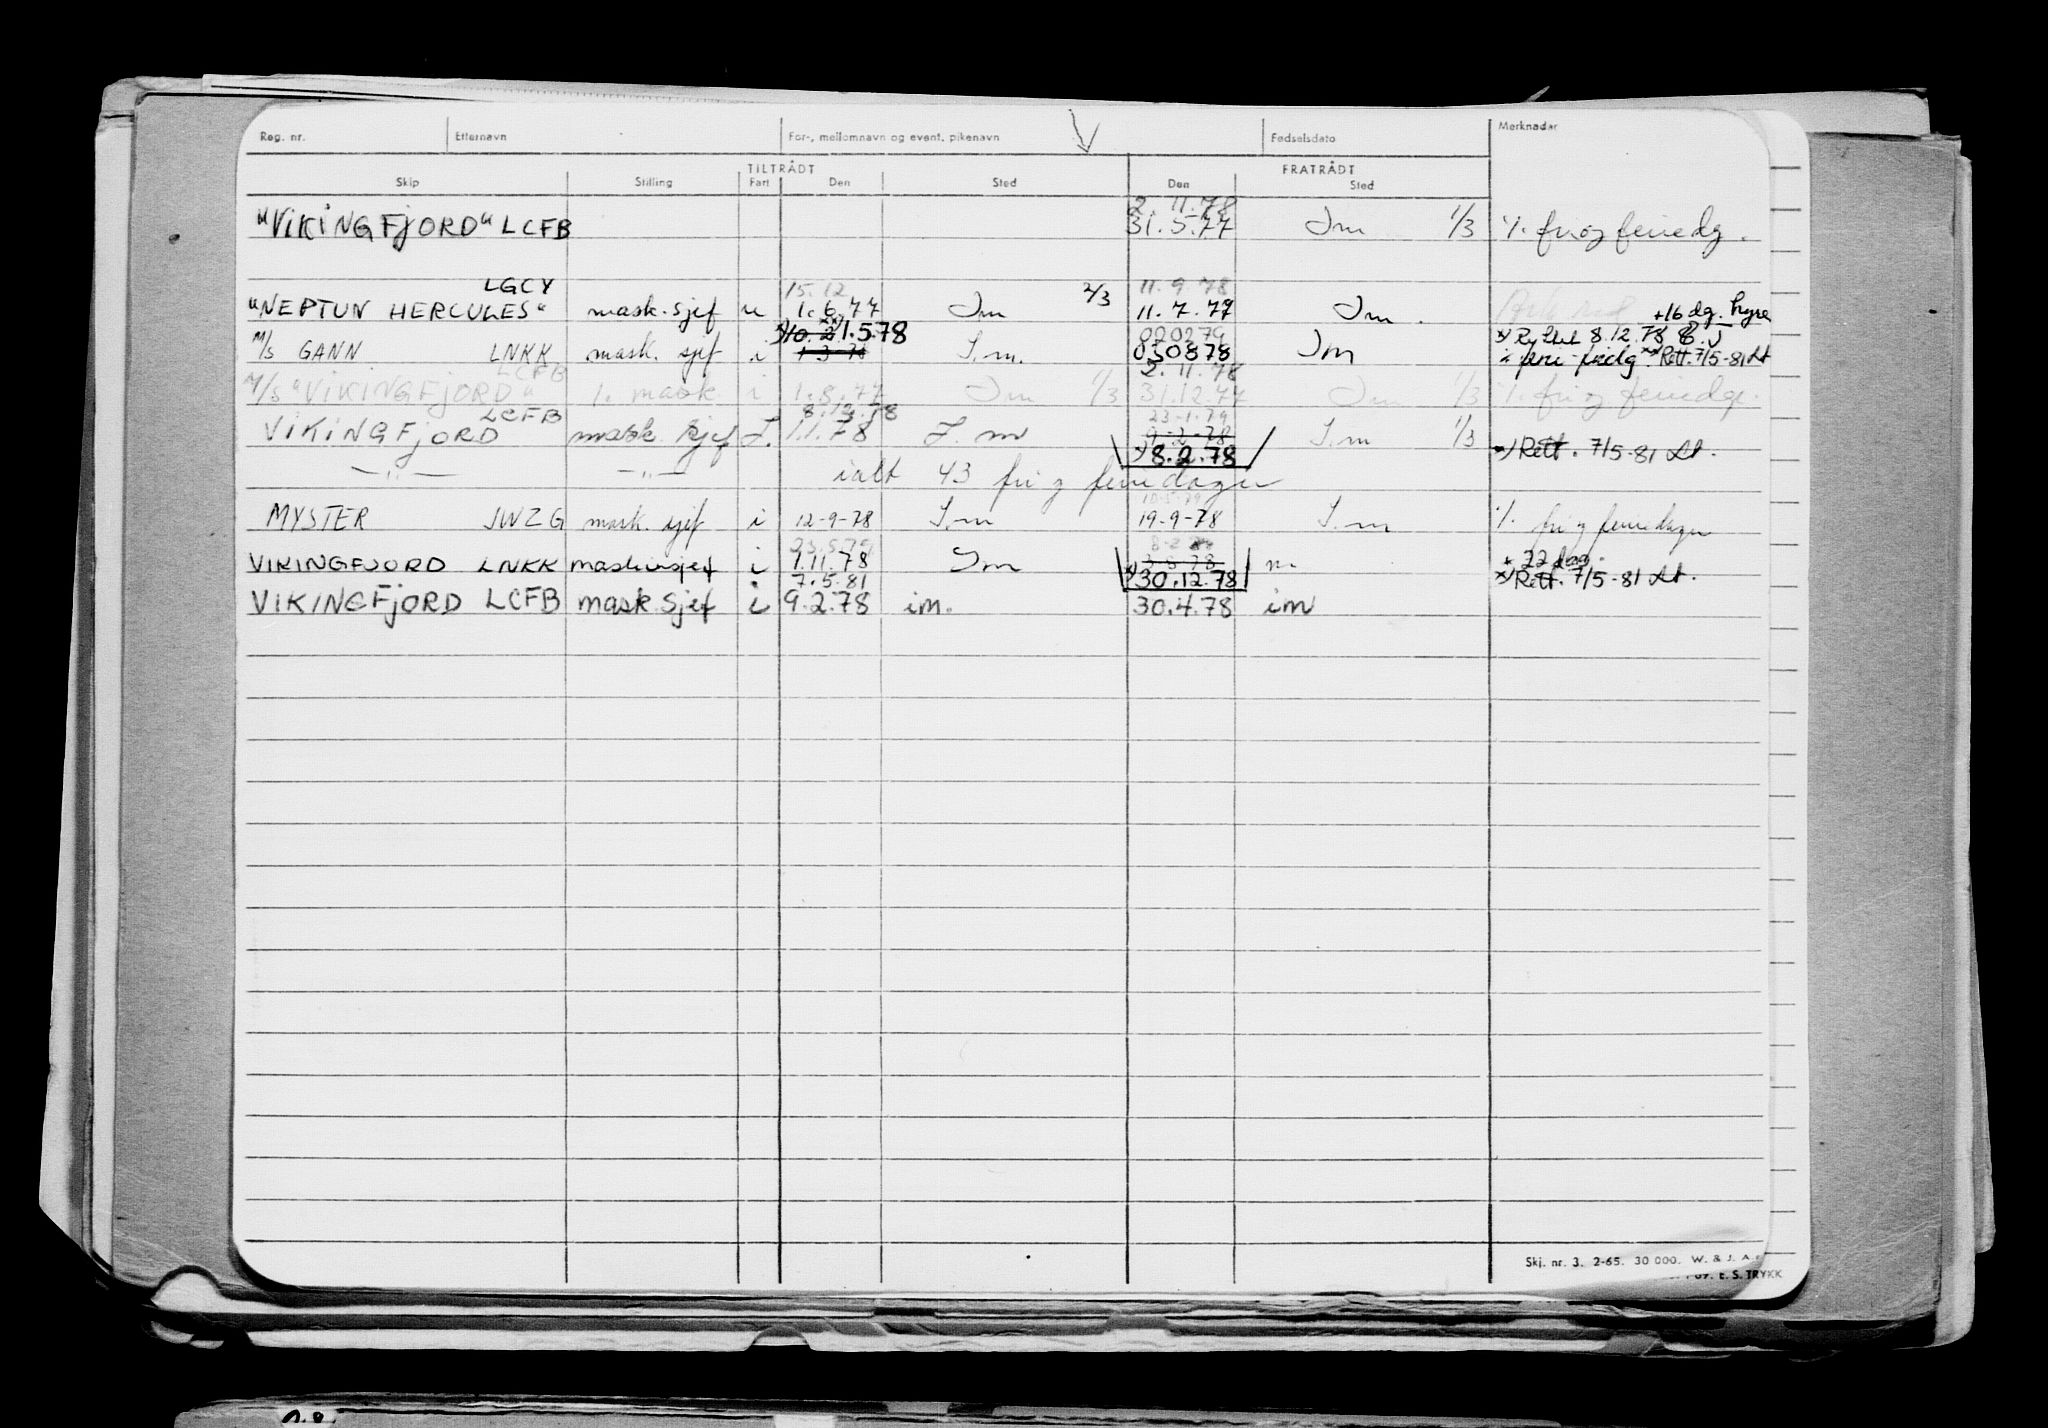 Reg. nr. Etternavn For-, mellomnavn og event. pikenavn Fødselsdato Merknader
TILTRÅDT FRATRÅDT
Skip Stilling Fart Den Sted Den Sted
2.11.78
"VIKINGFJORD" LCFB 31.5.77 Im 1/3 % fri og feriedg.
LGCY 15.12 11.9 78
"NEPTUN HERCULES" mask.sjef u 1.6.77 Im 2/3 11.7.77 Im. +16 dg. hyre
10.2 1.5.78 020279 8.12.78
M/S GANN LNKK mask. sjef i 1 3 78 I.m. 030878 Im Rett. 7/5-81 At
LCFB 2.11.78
M/S "VIKINGFJORD" 1. mask i 1.8.77 Im 1/3 31.12.77 Im 1/3 % fri og feriedge.
LCFB 8.12.78 23-1.79
VIKINGFJORD mask. sjef I. 1.1.78 I.m 9-2-78 I.m 1/3
x) 8.2.78 x) Rett. 7/5-81 At.
—"— —"— ialt 43 fri og feriedager
MYSTER JWZG mask. sjef i 12-9-78 I.m 19-9-78 I.m % fri og feriedager
23.5.79
VIKINGFJORD LNKK maskinsjef i 1.11.78 Im 3 8 78 m + 22 dag.
7.5.81 x) 30.12.78 x) Rett. 7/5-81 At.
VIKINGFJORD LCFB mask sjef i 9.2.78 im. 30.4.78 im
Skj. nr. 3. 2-65. 30 000. W. & J. A.
E. S. TRYKK